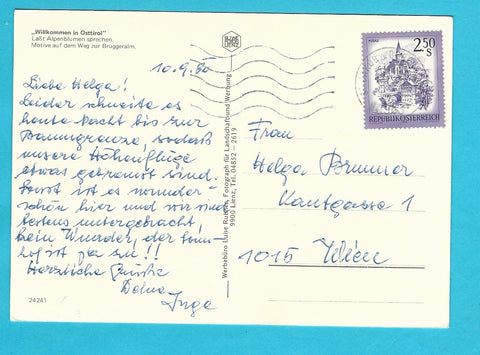 „Willkommen in Osttirol"
Laßt Alpenblumen sprechen.
Motive auf dem Weg zur Bruggeralm.
10.9.80
Liebe Helga!
Leider schneite es
heute Nacht bis zur
Baumgrenze, sodaß
unsere Höhenflüge
etwas gebremst sind.
Sonst ist es wunder-
schön hier und wir sind
bestens untergebracht,
kein Wunder, der
hof ist ja zu!!
Herzliche Grüße
Deine
Inge
24241
Werbebüro Luise Fotograf für Landschaft und Werbung
9900 Lienz, Tel. 04852 - 2619
LIENZ
MURAU
2.50
S
REPUBLIK ÖSTERREICH
Frau
Helga Brunner
Kantgasse 1
1015 Wien